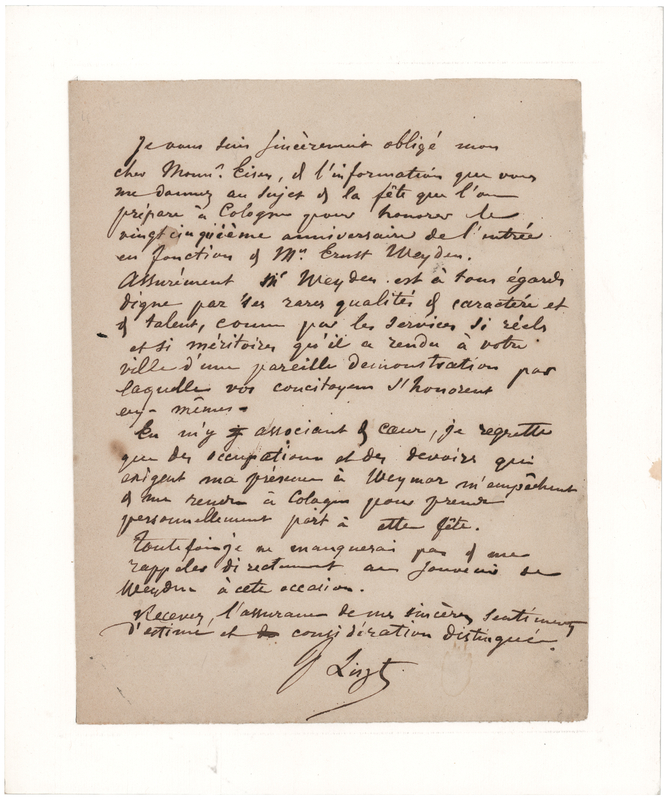 Je vous suis sincèrement obligé mon
cher Monsr. Eiser, de l'information que vous
me donnez au sujet de la fête que l'on
prépare à Cologne pour honorer le
vingtcinquième anniversaire de l'entrée
en fonction de Mr. Ernst Weyden.
Assurément Mr Weyden est à tous égards
digne par ses rares qualités de caractère et
de talent, comme par les services si réels
et si méritoires qu'il a rendu à votre
ville d'une pareille démonstration par
laquelle vos concitoyens s'honorent
eux-mêmes.
En m'y associant de cœur, je regrette
que des occupations et des devoirs qui
exigent ma présence à Weymar m'empêchent
de me rendre à Cologne pour prendre
personnellement part à cette fête.
Toutefois je ne manquerai pas de me
rappeler directement au souvenir de
Weyden à cete occasion.
Recevez, l'assurance de mes sincères sentiments
d'estime et de considération distinguée.
F Liszt